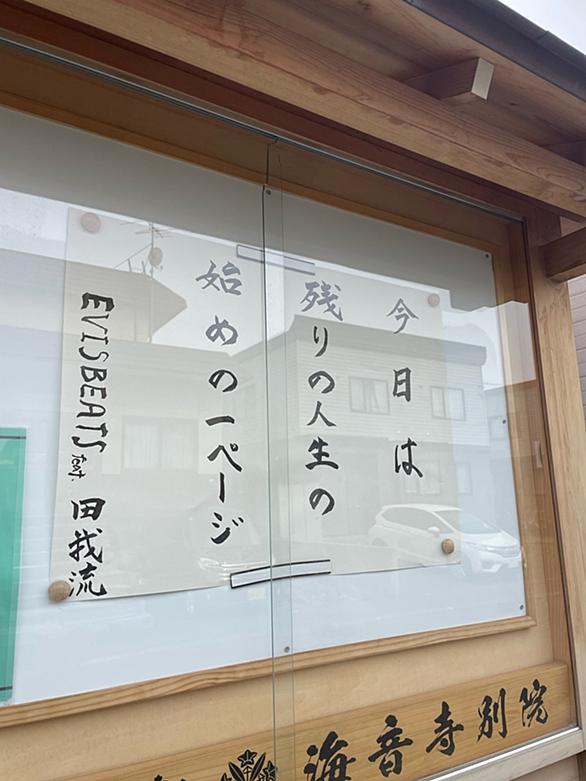 今日は
残りの人生の
始めの一ページ
EVISBEATS feat. 田我流
海音寺別院